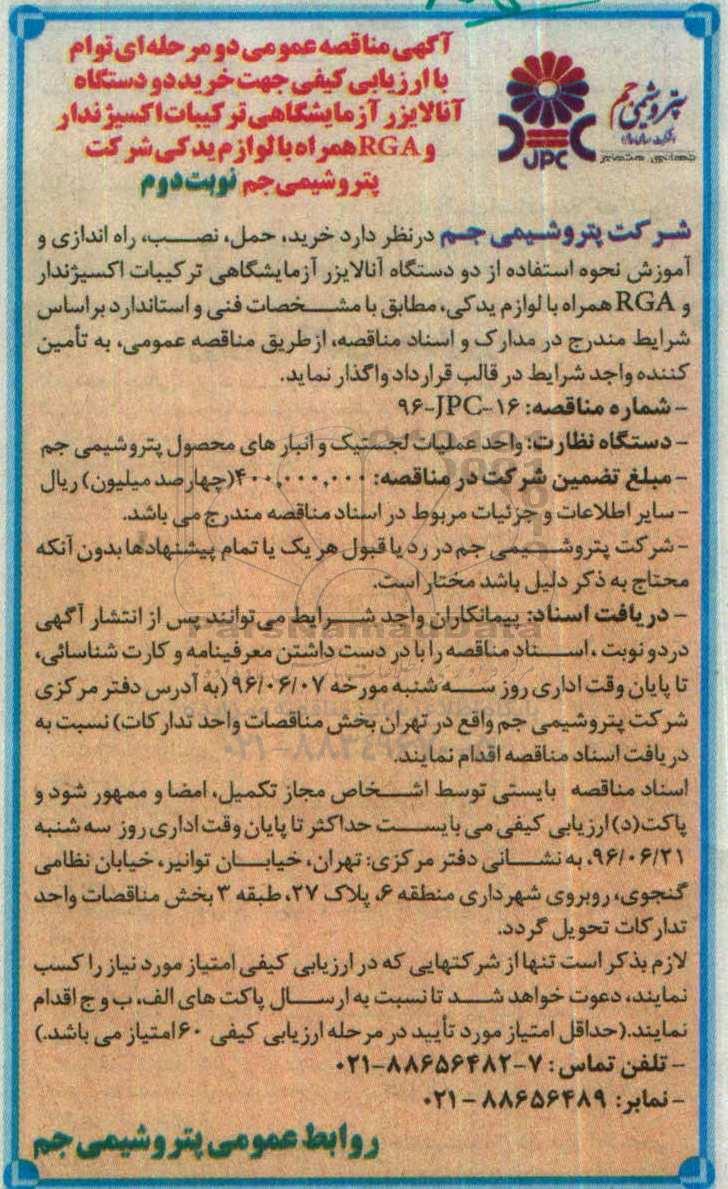 آگهی مناقصه عمومی دو مرحله‌ای توام
با ارزیابی کیفی جهت خرید دو دستگاه
آنالایزر آزمایشگاهی ترکیبات اکسیژندار
و RGA همراه با لوازم یدکی شرکت
پتروشیمی جم نوبت دوم
پتروشیمی جم
JPC
شرکت پتروشیمی جم درنظر دارد خرید، حمل، نصب، راه اندازی و
آموزش نحوه استفاده از دو دستگاه آنالایزر آزمایشگاهی ترکیبات اکسیژندار
و RGA همراه با لوازم یدکی، مطابق با مشخصات فنی و استاندارد براساس
شرایط مندرج در مدارک و اسناد مناقصه، ازطریق مناقصه عمومی، به تأمین
کننده واجد شرایط در قالب قرارداد واگذار نماید.
- شماره مناقصه: ۱۶-JPC-۹۶
- دستگاه نظارت: واحد عملیات لجستیک و انبار های محصول پتروشیمی جم
- مبلغ تضمین شرکت در مناقصه: ۴۰۰,۰۰۰,۰۰۰(چهارصد میلیون) ریال
- سایر اطلاعات و جزئیات مربوط در اسناد مناقصه مندرج می باشد.
- شرکت پتروشیمی جم در رد یا قبول هر یک یا تمام پیشنهادها بدون آنکه
محتاج به ذکر دلیل باشد مختار است.
- دریافت اسناد: پیمانکاران واجد شرایط می‌توانند پس از انتشار آگهی
در دو نوبت ، اسناد مناقصه را با در دست داشتن معرفینامه و کارت شناسائی،
تا پایان وقت اداری روز سه شنبه مورخه ۹۶/۰۶/۰۷ (به آدرس دفتر مرکزی
شرکت پتروشیمی جم واقع در تهران بخش مناقصات واحد تدارکات) نسبت به
دریافت اسناد مناقصه اقدام نمایند.
اسناد مناقصه بایستی توسط اشخاص مجاز تکمیل، امضا و ممهور شود و
پاکت(د) ارزیابی کیفی می بایست حداکثر تا پایان وقت اداری روز سه شنبه
۹۶/۰۶/۲۱، به نشانی دفتر مرکزی: تهران، خیابان توانیر، خیابان نظامی
گنجوی، روبروی شهرداری منطقه ۶، پلاک ۲۷، طبقه ۳ بخش مناقصات واحد
تدارکات تحویل گردد.
لازم بذکر است تنها از شرکتهایی که در ارزیابی کیفی امتیاز مورد نیاز را کسب
نمایند، دعوت خواهد شد تا نسبت به ارسال پاکت های الف، ب و ج اقدام
نمایند.(حداقل امتیاز مورد تأیید در مرحله ارزیابی کیفی ۶۰ امتیاز می باشد.)
- تلفن تماس : ۷-۸۸۶۵۶۴۸۲-۰۲۱
- نمابر: ۸۸۶۵۶۴۸۹ - ۰۲۱
روابط عمومی پتروشیمی جم